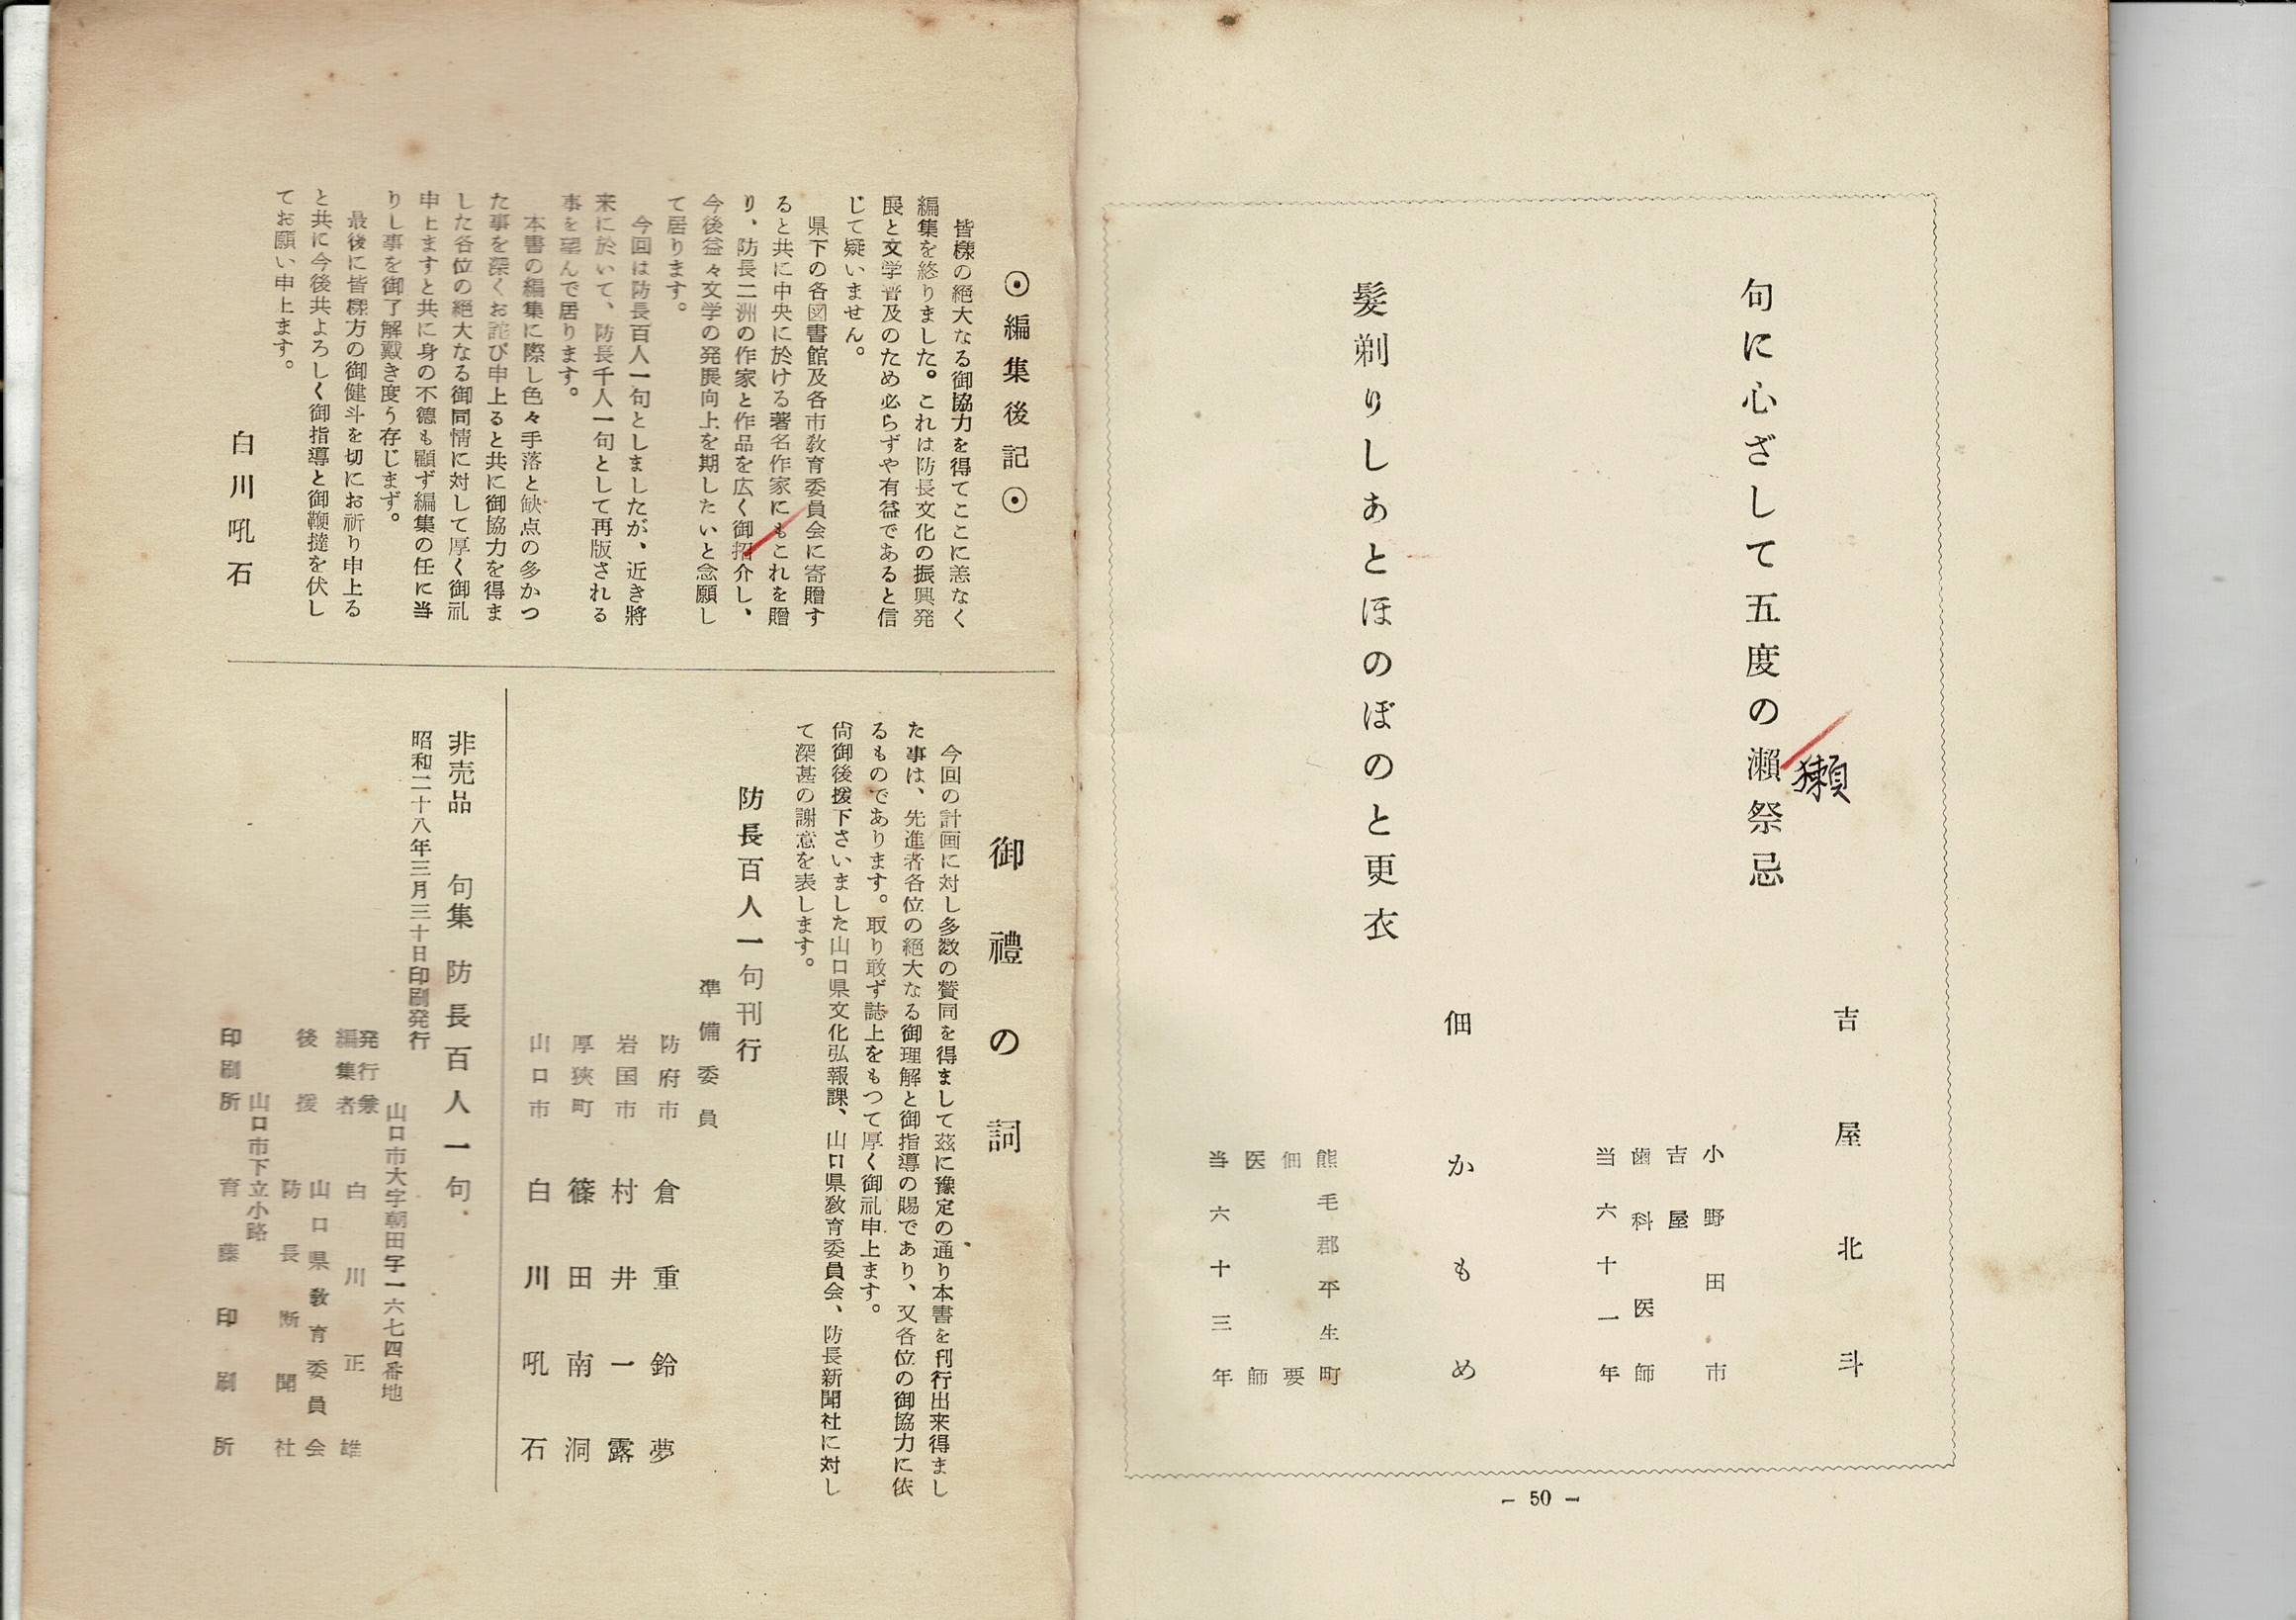 句に心ざして五度の瀨祭忌
獺
吉屋北斗
小野田市
吉屋
歯科医師
当六十一年
髮剃りしあとほのぼのと更衣
佃かもめ
熊毛郡平生町
佃要
医師
当六十三年
- 50 -
⦿編集後記⦿
皆樣の絶大なる御協力を得てここに恙なく
編集を終りました。これは防長文化の振興発
展と文学普及のため必らずや有益であると信
じて疑いません。
県下の各図書館及各市敎育委員会に寄贈す
ると共に中央に於ける著名作家にもこれを贈
り、防長二洲の作家と作品を広く御招介し、
今後益々文学の発展向上を期したいと念願し
て居ります。
今回は防長百人一句としましたが、近き將
来に於いて、防長千人一句として再版される
事を望んで居ります。
本書の編集に際し色々手落と缺点の多かつ
た事を深くお詫び申上ると共に御協力を得ま
した各位の絶大なる御同情に対して厚く御礼
申上ますと共に身の不德も顧ず編集の任に当
りし事を御了解戴き度う存じまず。
最後に皆樣方の御健斗を切にお祈り申上る
と共に今後共よろしく御指導と御鞭撻を伏し
てお願い申上ます。
白川吼石
御禮の詞
今回の計画に対し多数の賛同を得まして茲に豫定の通り本書を刊行出来得まし
た事は、先進者各位の絶大なる御理解と御指導の賜であり、又各位の御協力に依
るものであります。取り敢ず誌上をもつて厚く御礼申上ます。
尙御後援下さいました山口県文化弘報課、山口県敎育委員会、防長新聞社に対し
て深甚の謝意を表します。
防長百人一句刊行
準備委員
防府市 倉重鈴夢
岩国市 村井一露
厚狹町 篠田南洞
山口市 白川吼石
非売品 句集 防長百人一句
昭和二十八年三月三十日印刷発行
山口市大字朝田字一六七四番地
発行兼
編集者 白川正雄
後援 山口県敎育委員会
防長新聞社
山口市下立小路
印刷所 育藤印刷所